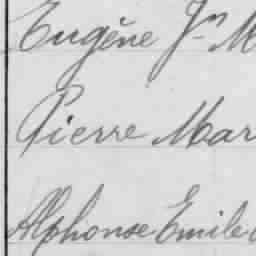 Eugène Jn M
Pierre Mar
Alphonse Emile